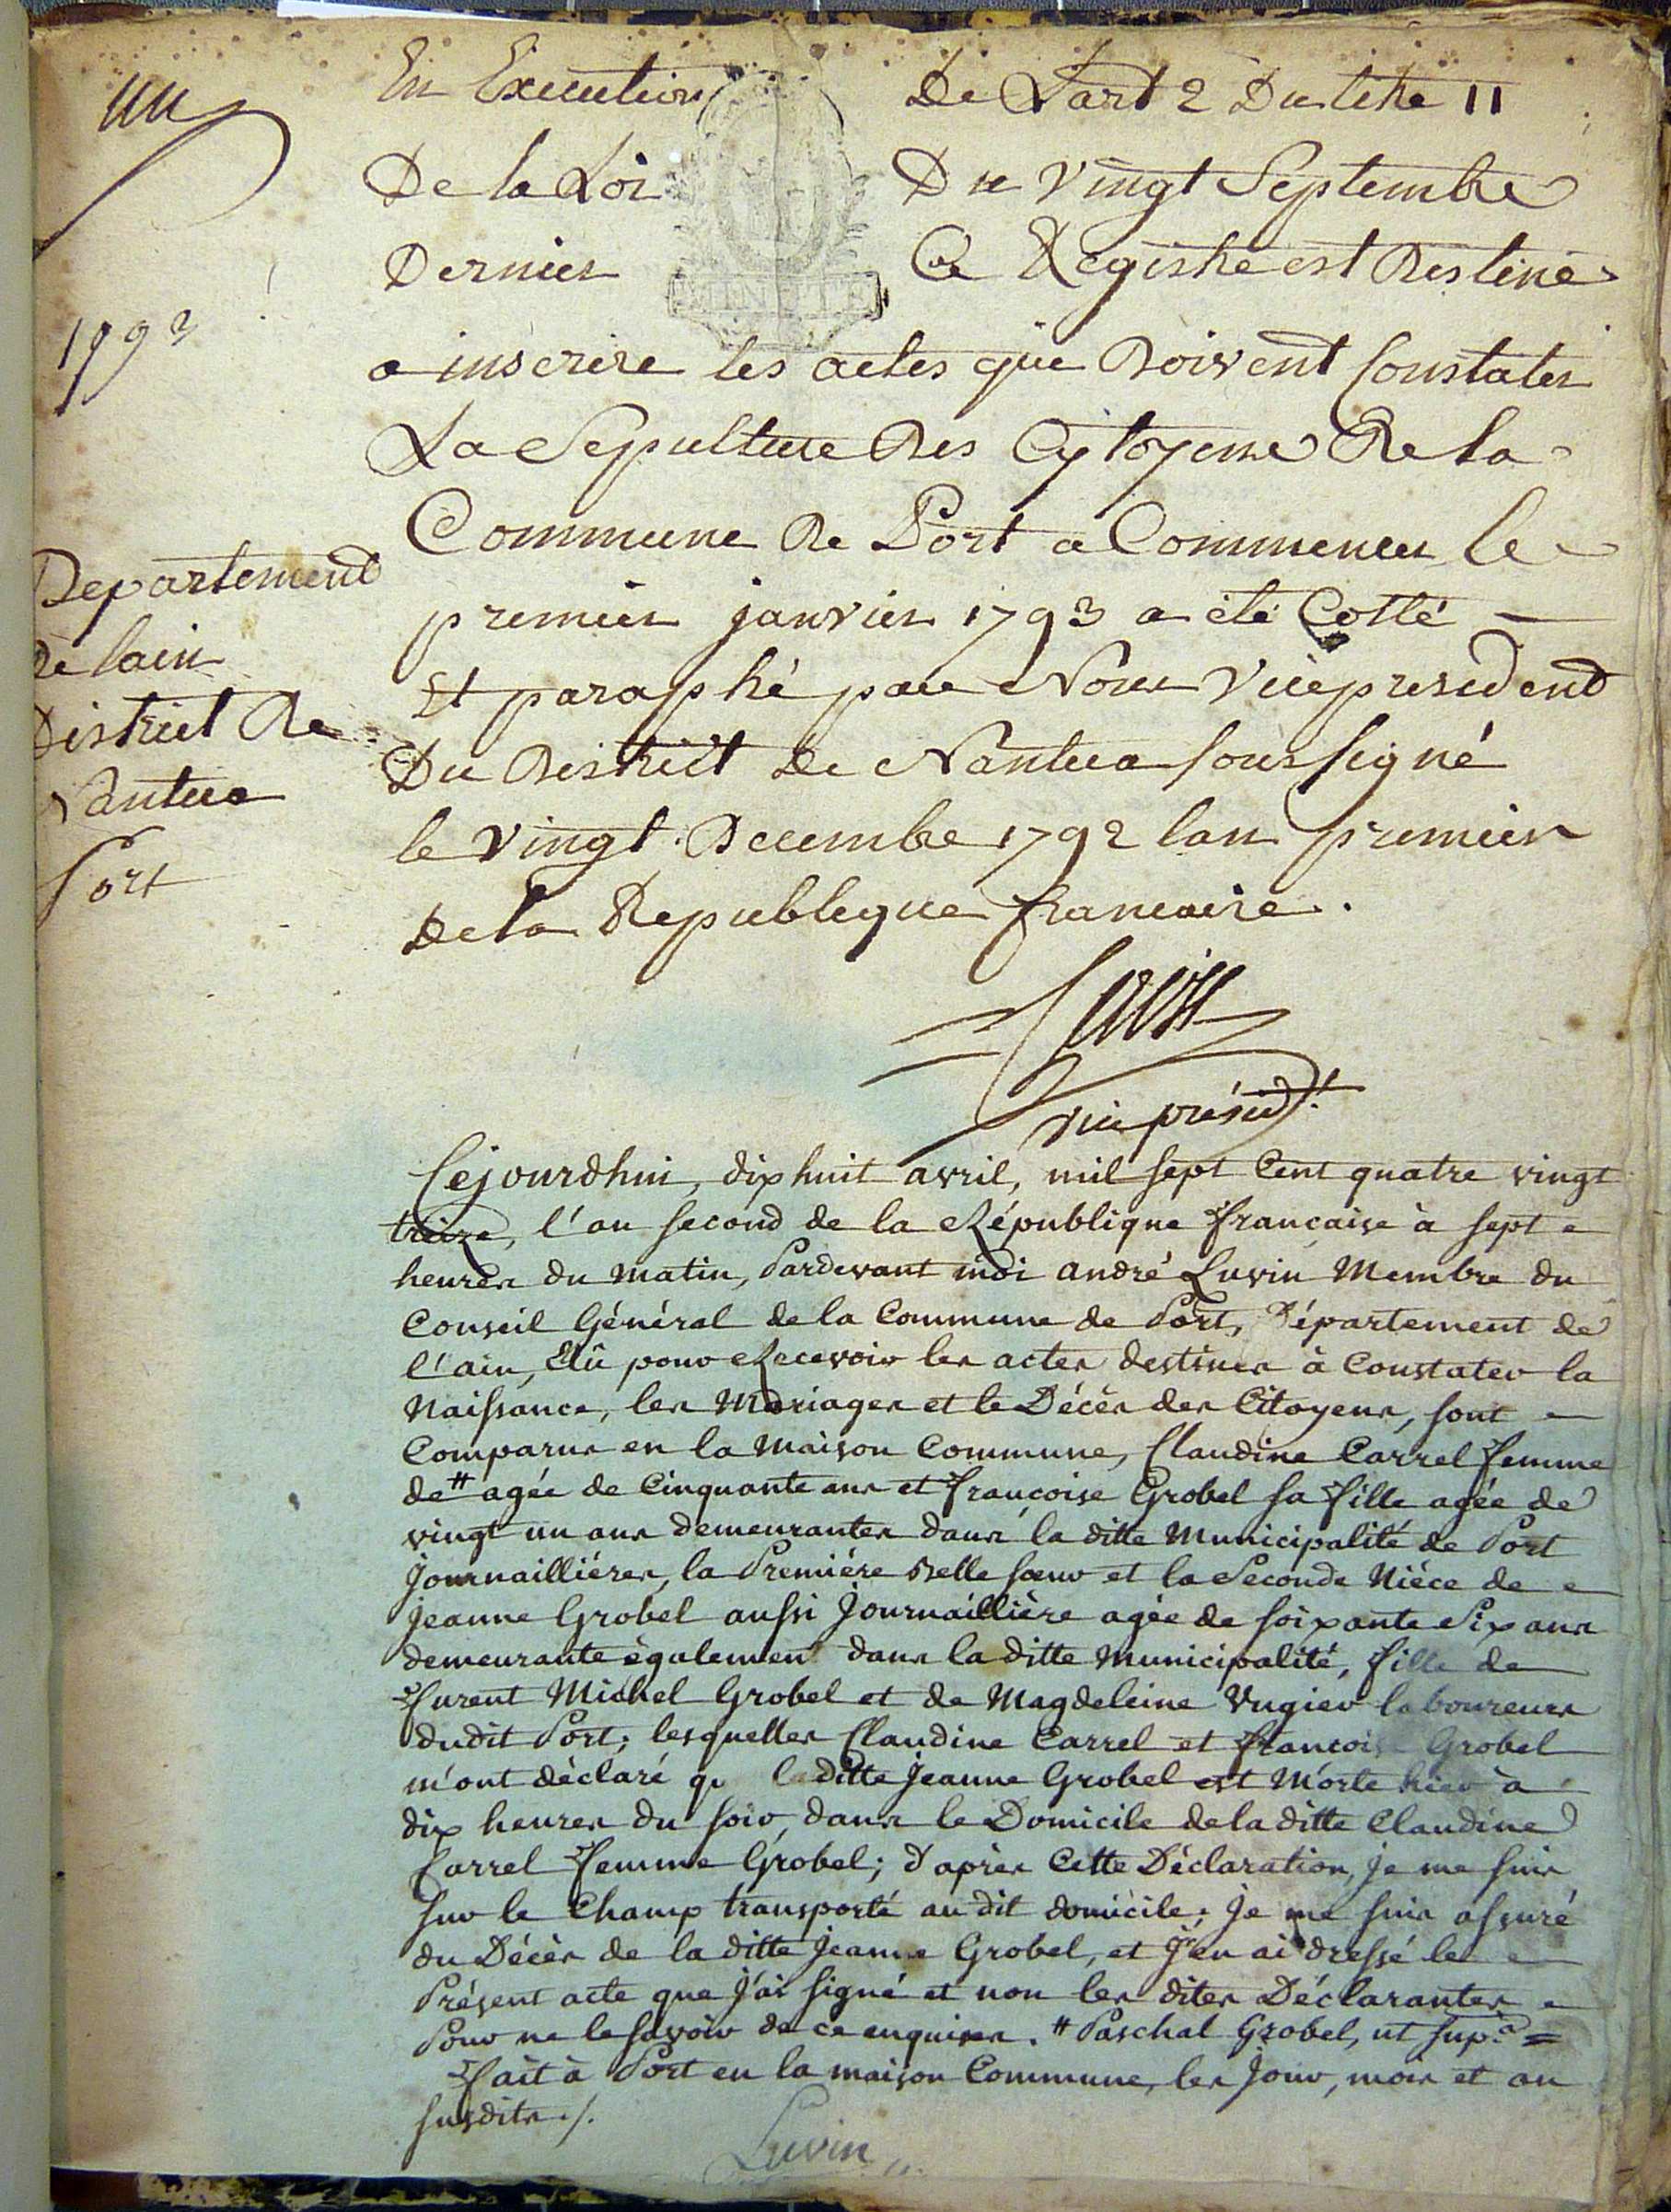 un
1793
Departement
de lain
District De
Nantua
Port
En Execution De Lart 2 Du titre 11
De la Loi Du vingt Septembre
Dernier Ce Registre est Destiné
a inscrire les actes qui Doivent Constater
La Sepulture Des Cytoyens De la
Commune De Port a Commencer le
premier janvier 1793 a été Cotté
Et paraphé par Nous Vice president
Du District De Nantua soussigné
le vingt Decembre 1792 lan premier
De la Republique francaise.
vice présidt.
Cejourdhui, dix huit avril, mil sept Cent quatre vingt
treize, l'an second de la République française à sept
heures du matin, Pardevant moi andré Luvin Membre du
Conseil Général de la Commune de Port, Département de
l'ain, Elû pour Recevoir les actes destinés à Constater la
Naissance, les Mariages et le Décès des Citoyens, sont
Comparus en la Maison Commune, Claudine Carrel femme
de # agée de Cinquante ans et francoise Grobel sa fille agée de
vingt un ans demeurantes dans la ditte Municipalité de Port
Journailliéres, la Premiére Belle sœur et la Seconde Niéce de
Jeanne Grobel aussi Journaillière agée de soixante Six ans
demeurante également dans la ditte Municipalité, fille de
furent Michel Grobel et de Magdeleine Vugier laboureurs
dudit Port; lesquelles Claudine Carrel et francois Grobel
m'ont déclaré qu laditte Jeanne Grobel est Morte hier à
dix heures du soir, dans le Domicile de la ditte Claudine
Carrel femme Grobel; d'après Cette Déclaration, je me suis
sur le Champ transporté au dit domicile; je me suis assuré
du Décès de la ditte Jeanne Grobel, et j'en ai dressé le
Présent acte que j'ai signé et non les dites Déclarantes
Pour ne le savoir de ce enquises. # Paschal Grobel, ut supa =
fait à Port en la maison Commune, les Jour, mois et an
susdits ./.
Luvin
MINUTE